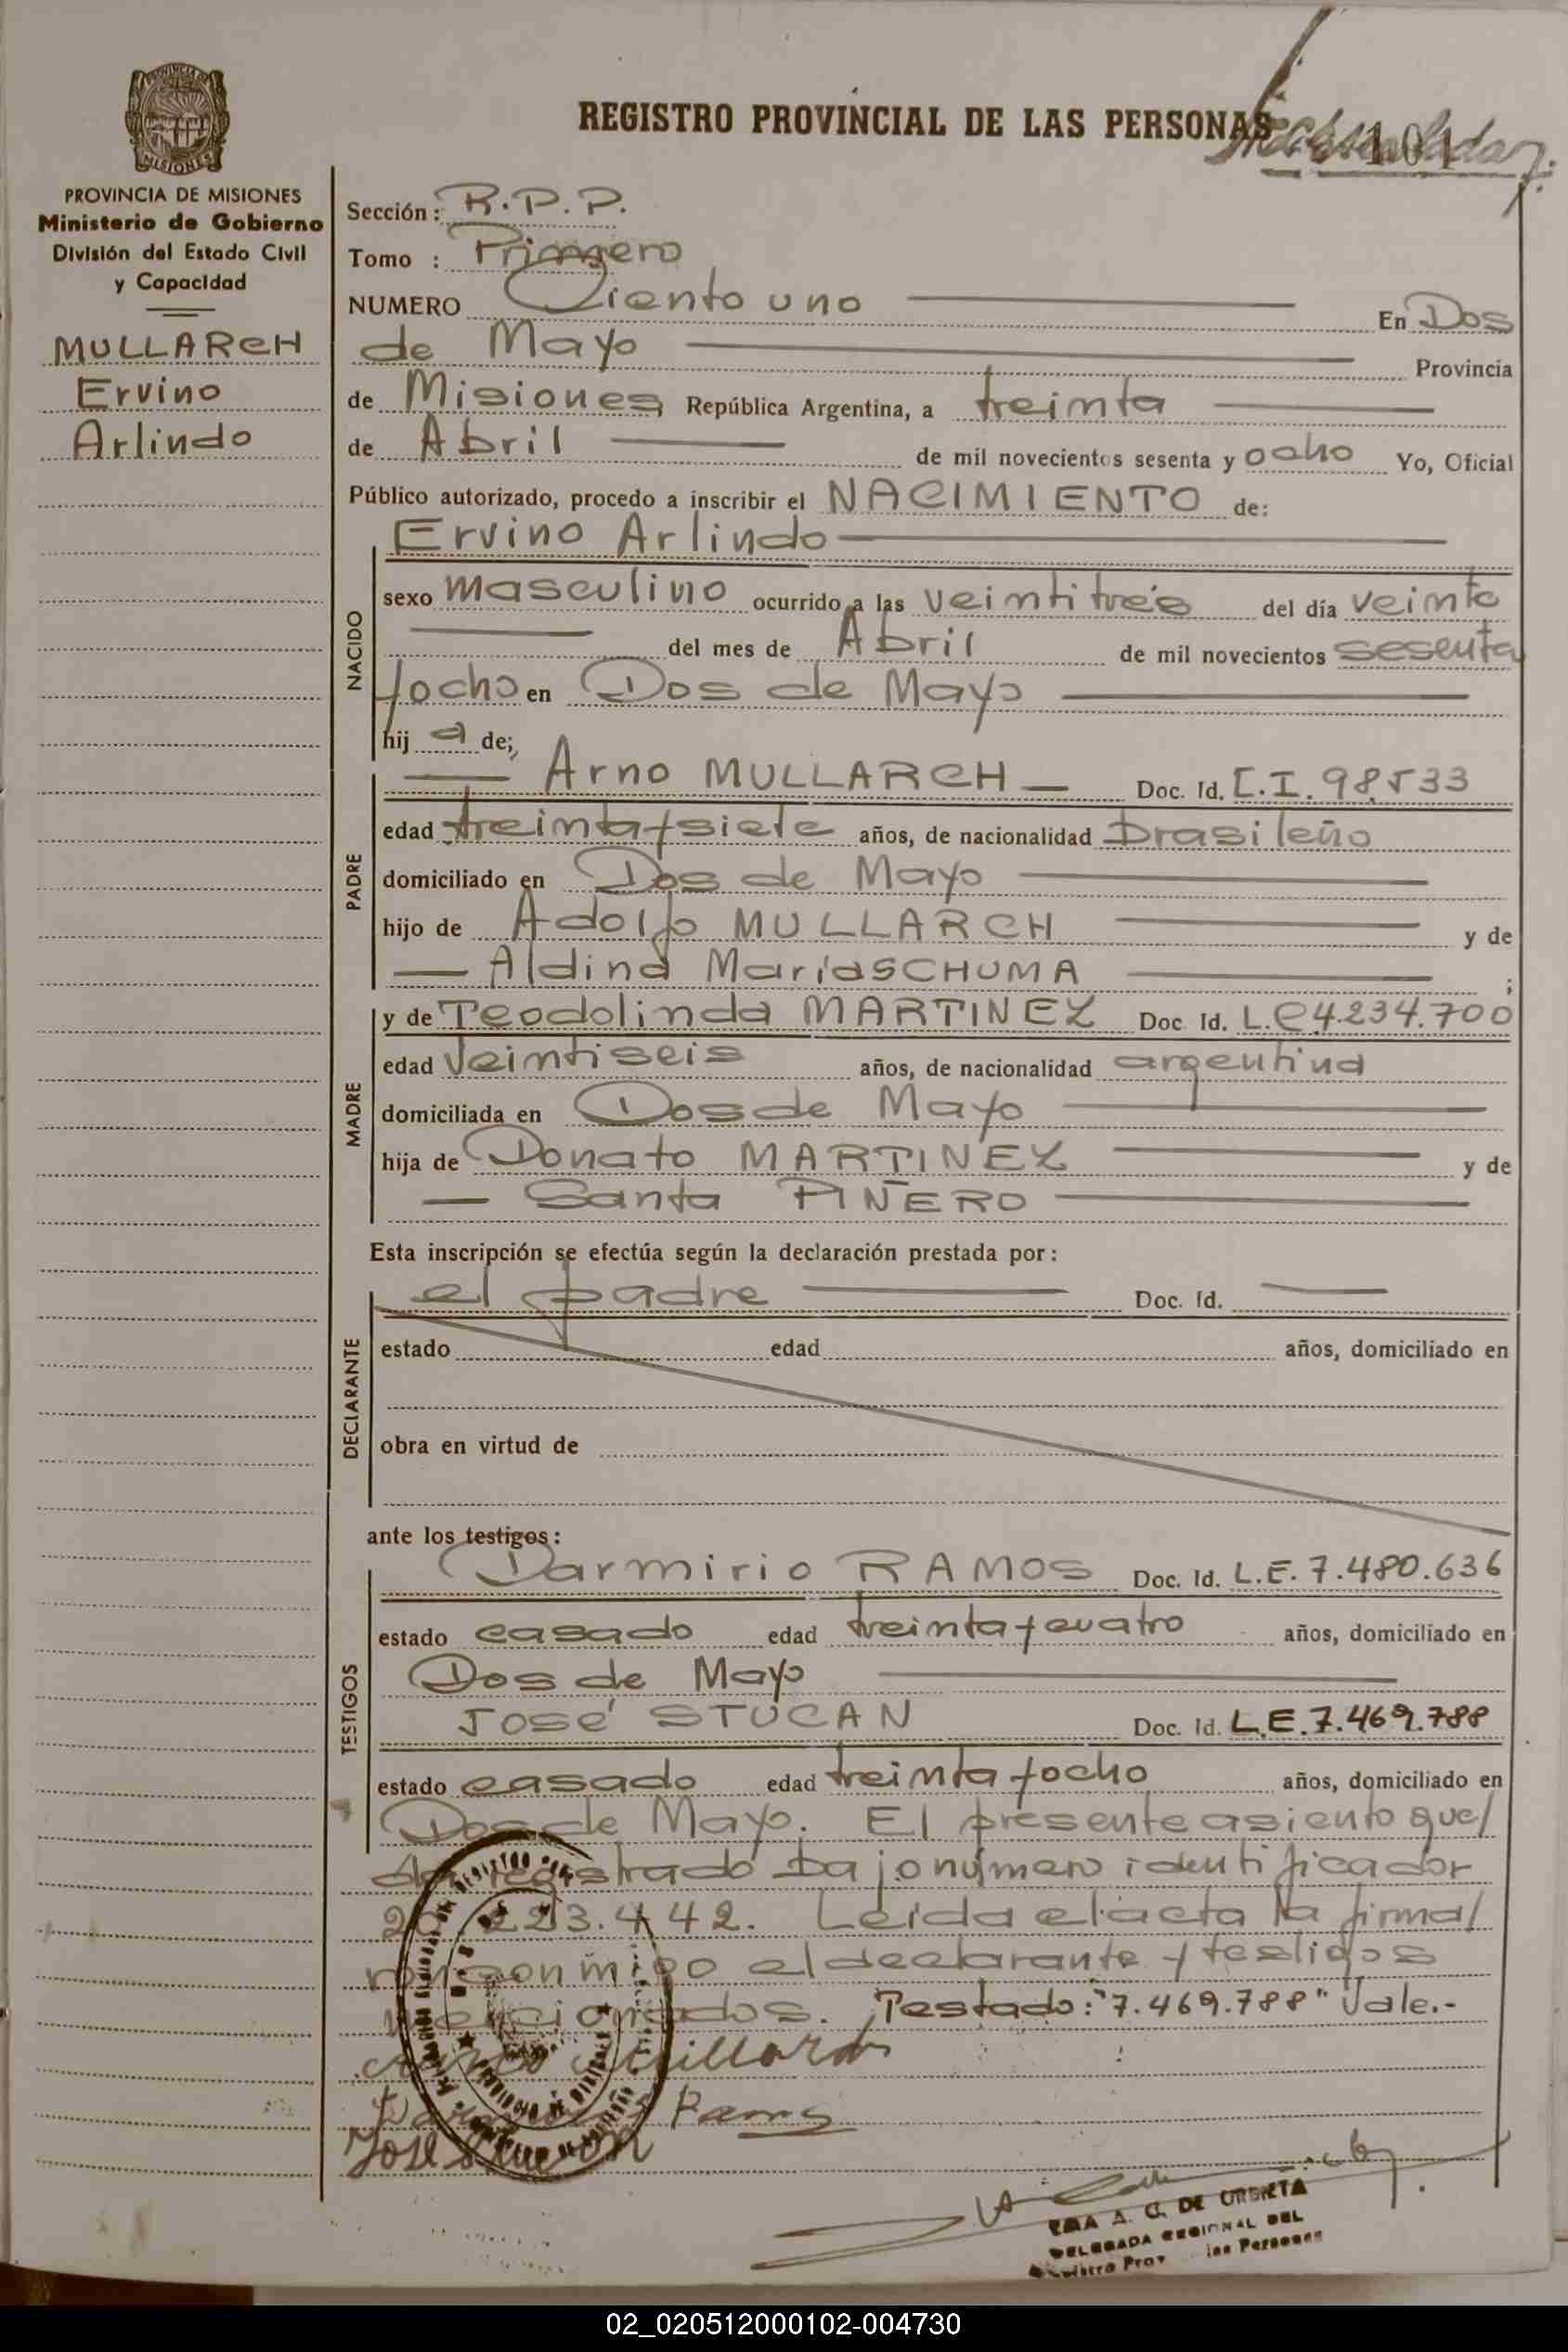 REGISTRO PROVINCIAL DE LAS PERSONAS
101
PROVINCIA DE MISIONES
Ministerio de Gobierno
División del Estado Civil
y Capacidad
MULLARCH
Ervino
Arlindo
Sección: R.P.P.
Tomo : Primero
NUMERO Ciento uno En Dos
de Mayo Provincia
de Misiones República Argentina, a treinta
de Abril de mil novecientos sesenta y ocho Yo, Oficial
Público autorizado, procedo a inscribir el NACIMIENTO de:
Ervino Arlindo
NACIDO
sexo masculino ocurrido a las veintitrés del día veinte
del mes de Abril de mil novecientos sesenta
yocho en Dos de Mayo
hij o de;
PADRE
Arno MULLARCH Doc. Id. C.I. 98533
edad treintaysiete años, de nacionalidad brasileño
domiciliado en Dos de Mayo
hijo de Adolfo MULLARCH y de
Aldina Maria SCHUMA ;
MADRE
y de Teodolinda MARTINEZ Doc. Id. L.C 4.234.700
edad veintiseis años, de nacionalidad argentina
domiciliada en Dos de Mayo
hija de Donato MARTINEZ y de
Santa PIÑERO
Esta inscripción se efectúa según la declaración prestada por:
DECLARANTE
el padre Doc. Id.
estado edad años, domiciliado en
obra en virtud de
ante los testigos:
TESTIGOS
Darmirio RAMOS Doc. Id. L.E. 7.480.636
estado casado edad treintaycuatro años, domiciliado en
Dos de Mayo
José STUCAN Doc. Id. L.E. 7.469.788
estado casado edad treinta yocho años, domiciliado en
Dos de Mayo. El presente asiento que/
da registrado bajo número identificador
20.223.442. Leida el acta la firma/
ron conmigo el declarante y testigos
mencionados. Testado: "7.469.788" Vale.-
Ramos
José Stucan
A. C. DE URBIETA
DELEGADA REGIONAL DEL
Registro Prov las Personas
02_020512000102-004730